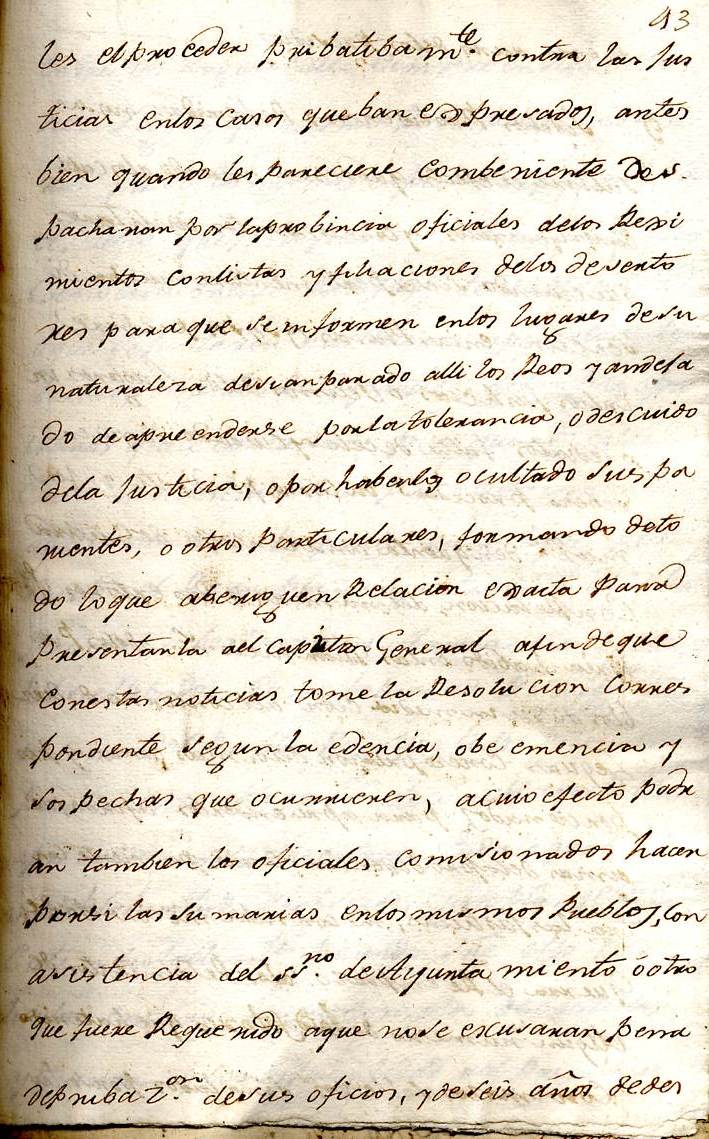 43
les el proceder pribatibamte. contra las Jus
ticias enlos casos queban expresados, antes
bien quando les pareciere combeniente des
pacharan por laprobincia oficiales delos Rexi
mientos conlistas y filiaciones delos deserto
res para que se informen enlos lugares desu
naturaleza desi an parado alli los Reos y andeja
do de apreenderse porla tolerancia, o descuido
dela Justicia, o por haberlos ocultado sus pa
rientes, o otros particulares, formando deto
do loque aberiguen Relacion exacta para
Presentarla ael Capitan General afin de que
conestas noticias tome la Resolucion corres
pondiente segun la edencia, obe emencia y
sospechas que ocurrieren, acuio efecto podr
an tambien los oficiales comisionados hacer
porsi las sumarias enlos mismos Pueblos, con
asistencia del ssno. de Ayuntamiento ó otro
que fuere Requerido aque nose excusaran pena
depribazon. desus oficios, y de seis años de des